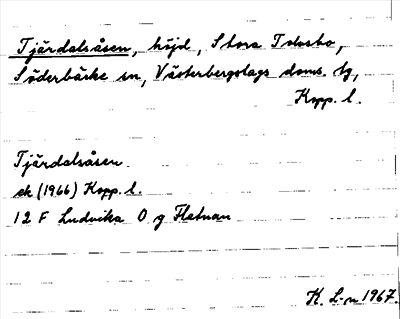 Tjärdalsåsen, höjd, Stora Tolvsbo,
Söderbärke sn, Västerbergslags doms. tg,
Kopp. l.
Tjärdalsåsen
ek (1966) Kopp. l.
12 F Ludvika O g Flatnan
K. L-n 1967.